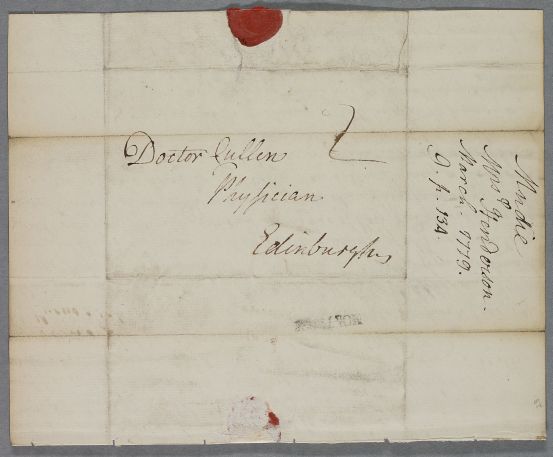 Doctor Cullen
2
Physician
Edinburgh
Mudie
&
Mrs Henderson.
March. 1779.
O. p. 134.